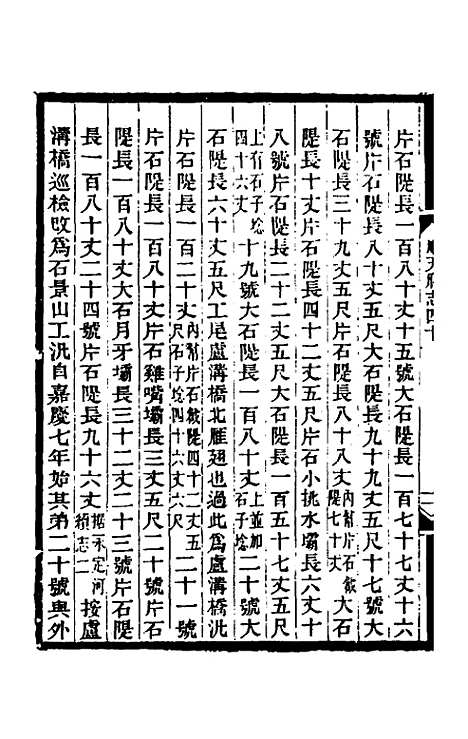 片石隄長一百八十丈十五號大石隄長一百七十七丈十六
號片石隄長八十九丈五尺大石隄長九十九丈五尺十七號大
石隄長三十九丈五尺片石隄長八十八丈內幫片石戧隄七十丈大石
隄長十丈片石隄長四十二丈五尺片石小挑水壩長六丈十
八號片石隄長二十二丈五尺大石隄長一百五十七丈五尺
上有石子埝四十六丈十九號大石隄長一百八十丈上並加石子埝二十號大
石隄長六十丈五尺工尾盧溝橋北雁翅也過此為盧溝橋汛
片石隄長一百二十丈內幫片石戧隄四十二丈五尺石子埝四十六丈六尺二十一號
片石隄長一百八十丈片石雞嘴壩長三丈五尺二十號片石
隄長一百八十丈大石月牙壩長三十二丈二十三號片石隄
長一百八十丈二十四號片石隄長九十六丈據永定河續志二按盧
溝橋巡檢改為石景山工汛自嘉慶七年始其弟二十號與外
順天府志四十